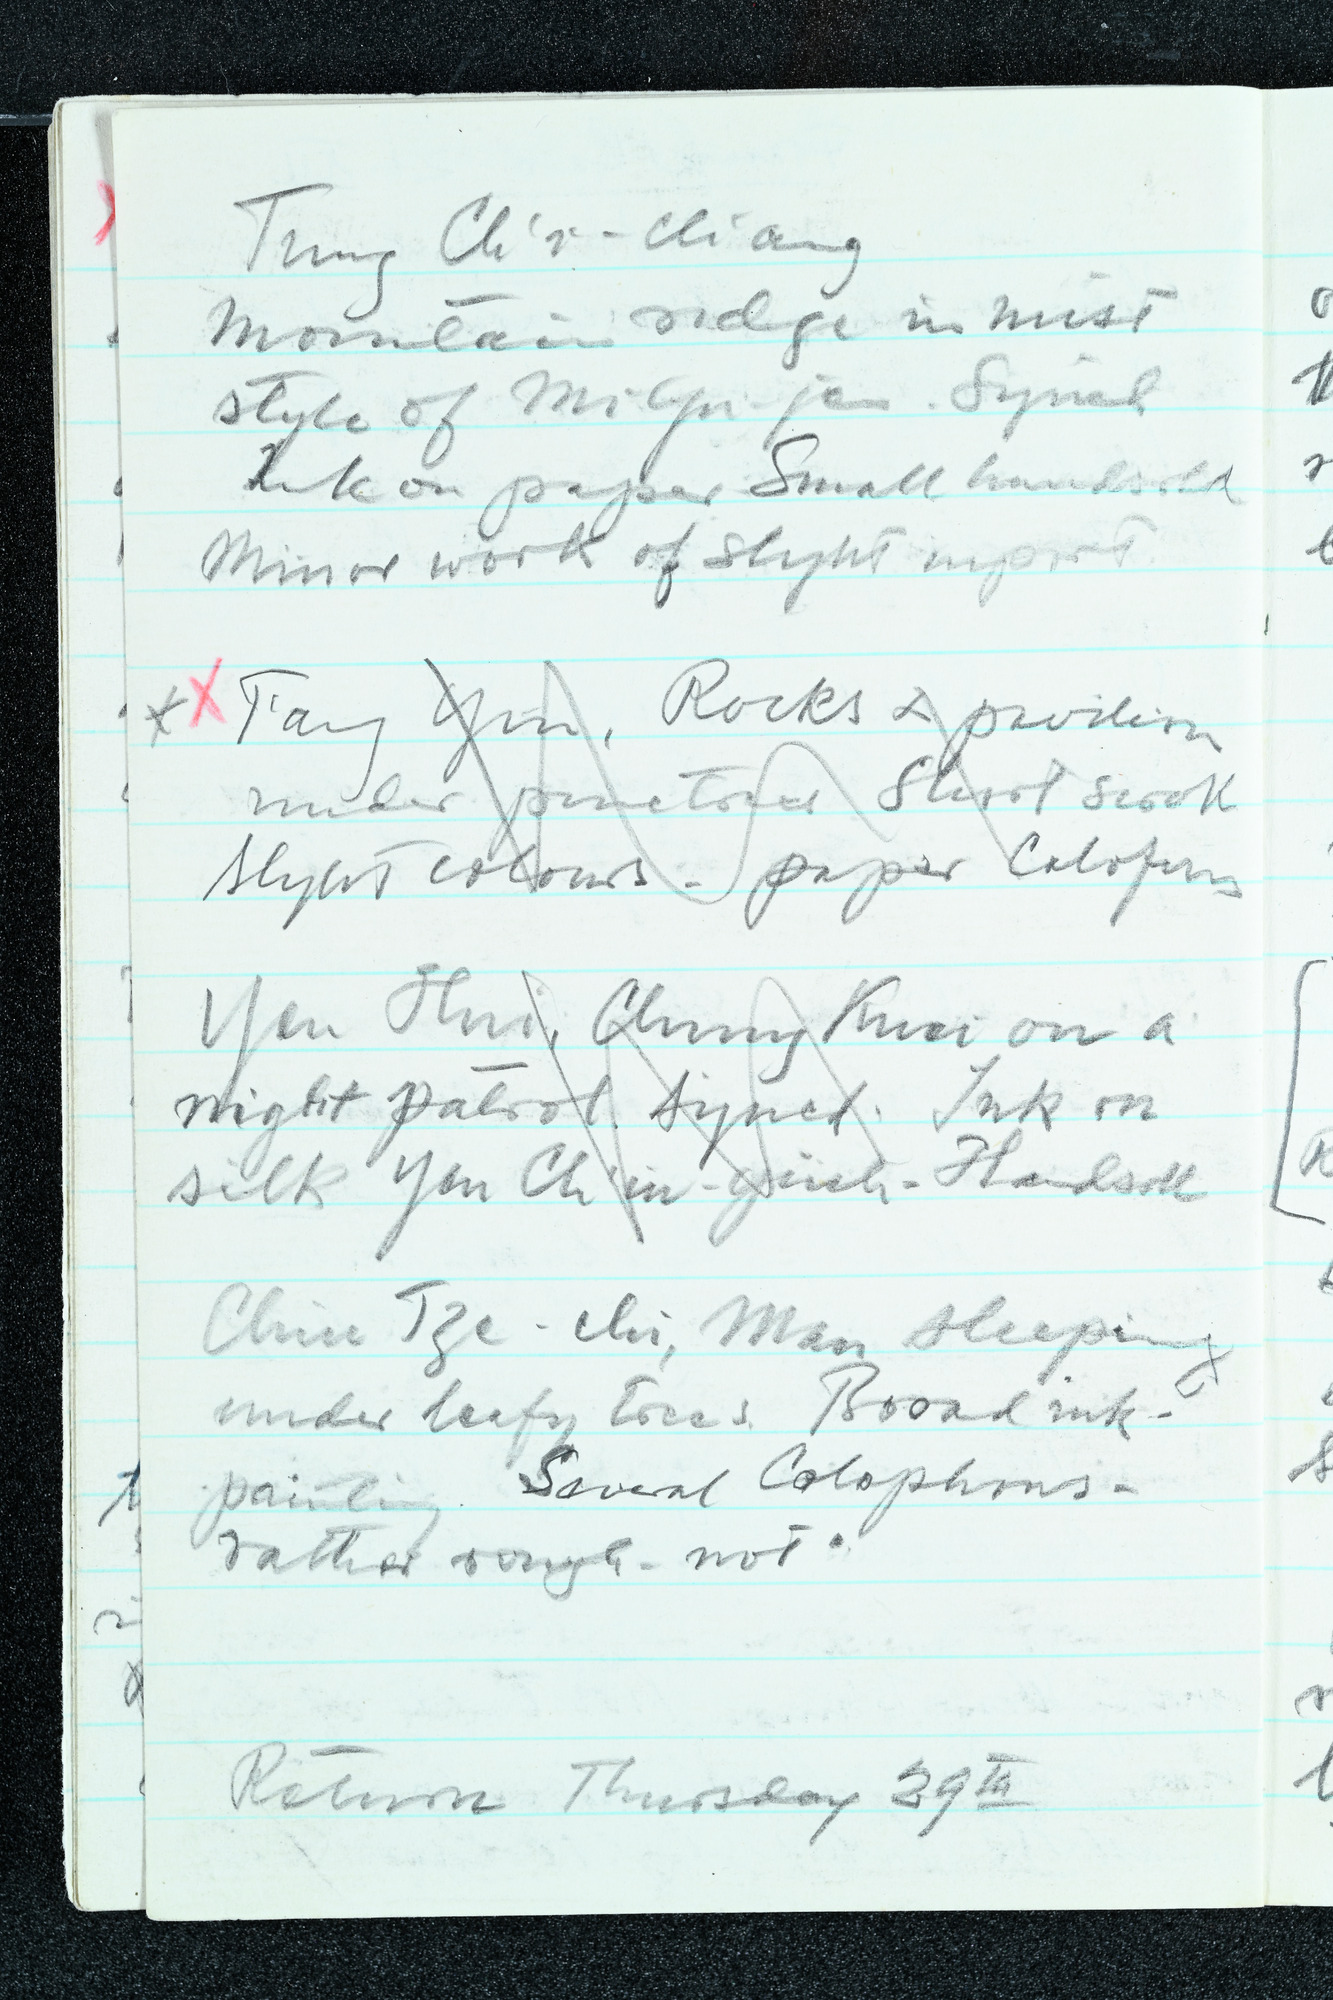 Tung Ch'i-chiang
Mountain ridge in mist
style of Mi Yu-jen. Signed
Ink on paper Small handscroll
Minor work of slight import.
x X T'ang Yin, Rocks & pavilion
under pinetrees Short scroll
slight colours - paper Colofons
Yen Hui, Chung Kuei on a
night patrol. Signed. Ink on
silk Yen Ch'in- - Handscroll
Tze-chi, Man sleeping
under leafy trees. Broad ink-
painting. Several Colophons -
rather rough - not
Return Thursday 29th